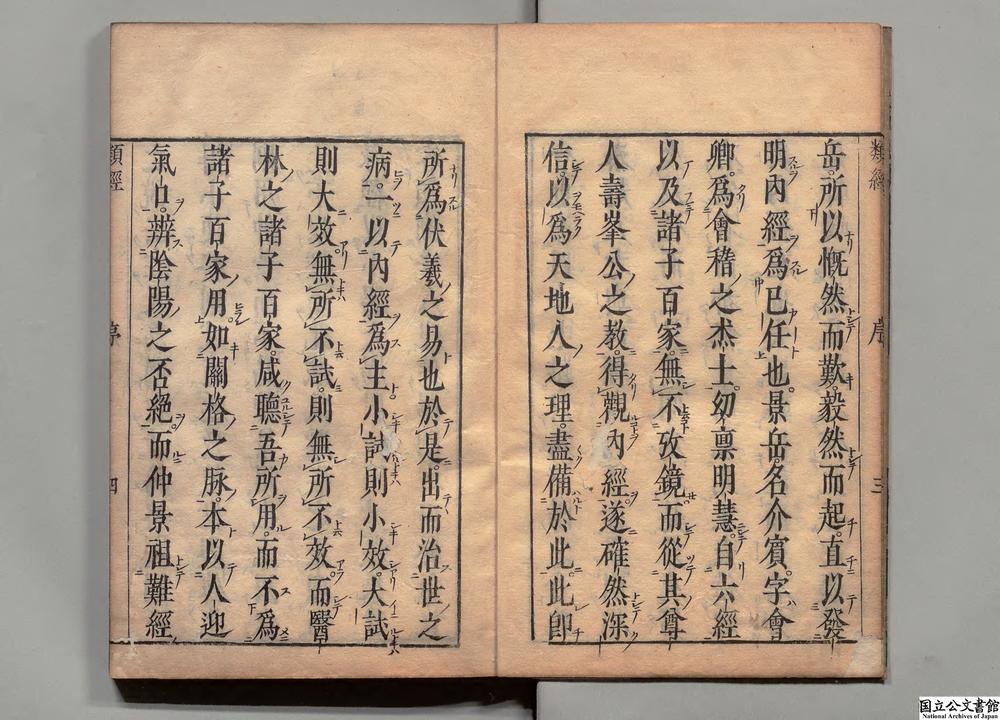 類經 序 三
岳所以慨然而歎毅然而起直以發
明內經爲已任也景岳名介賓字會
卿爲會稽之杰士幼禀明慧自六經
以及諸子百家無不攷鏡而從其尊
人壽峯公之教得觀內經遂確然深
信以爲天地人之理盡備於此此卽
所爲伏羲之易也於是出而治世之
病一以內經爲主小試則小效大試
則大效無所不試則無所不效而醫
林之諸子百家咸聽吾所用而不爲
諸子百家用如關格之脉本以人迎
氣口辨陰陽之否絕而仲景祖難經
類經 序 四
国立公文書館
National Archives of Japan